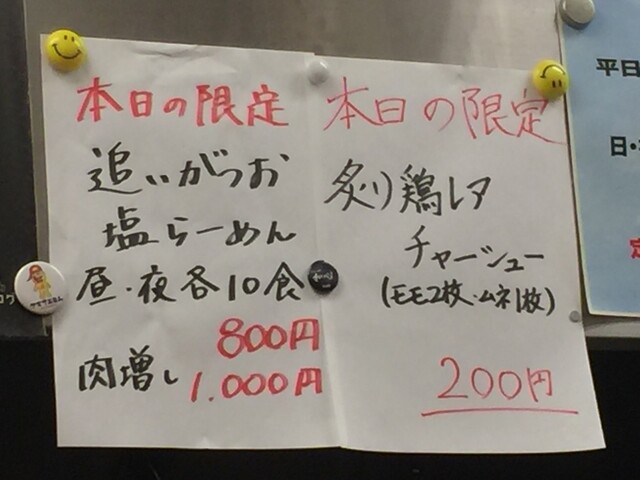 本日の限定
追いがつお
塩らーめん
昼・夜各10食
800円
肉増し 1.000円
本日の限定
炙り鶏レア
チャーシュー
(モモ2枚・ムネ1枚)
200円
平日
日・
定